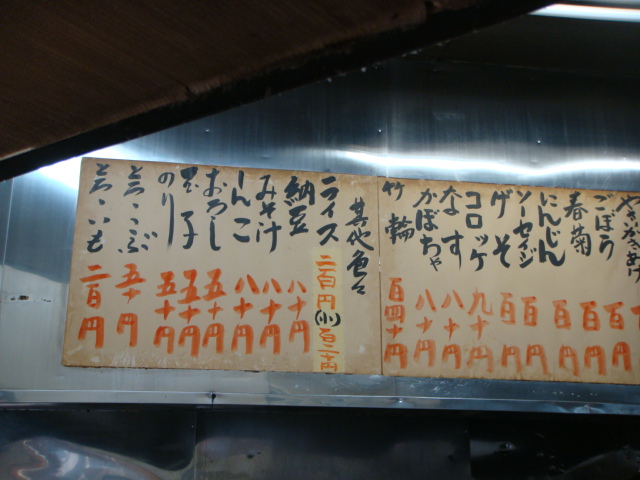 ごぼう 百円
春菊 百円
にんじん 百円
ソーセイジ 百円
ゲソ 百円
コロッケ 九十円
なす 八十円
かぼちゃ 八十円
竹輪 百四十円
其他色々
ライス 二百円(小)百二十円
納豆 八十円
みそ汁 八十円
しんこ 八十円
おろし 五十円
玉子 五十円
のり 五十円
とろろこぶ 五十円
とろろいも 二百円